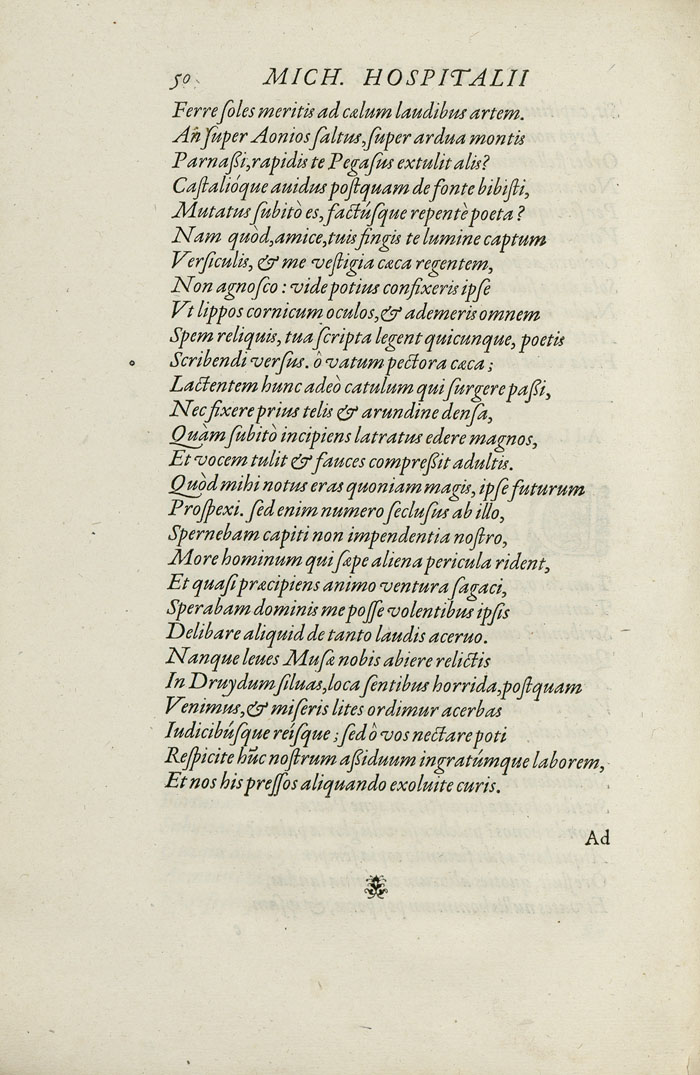 50 MICH. HOSPITALII
Ferre ſoles meritis ad cælum laudibus artem.
An ſuper Aonios ſaltus, ſuper ardua montis
Parnaßi, rapidis te Pegaſus extulit alis?
Caſtalióque auidus poſtquam de fonte bibiſti,
Mutatus ſubitò es, factúſque repentè poeta?
Nam quòd, amice, tuis fingis te lumine captum
Verſiculis, & me veſtigia cæca regentem,
Non agnoſco: vide potius confixeris ipſe
Vt lippos cornicum oculos, & ademeris omnem
Spem reliquis, tua ſcripta legent quicunque, poetis
Scribendi verſus. ô vatum pectora cæca;
Lactentem hunc adeò catulum qui ſurgere paßi,
Nec fixere prius telis & arundine denſa,
Quàm ſubitò incipiens latratus edere magnos,
Et vocem tulit & fauces compreßit adultis.
Quòd mihi notus eras quoniam magis, ipſe futurum
Proſpexi. ſed enim numero ſecluſus ab illo,
Spernebam capiti non impendentia noſtro,
More hominum qui ſæpe aliena pericula rident,
Et quaſi præcipiens animo ventura ſagaci,
Sperabam dominis me poſſe volentibus ipſis
Delibare aliquid de tanto laudis aceruo.
Nanque leues Muſæ nobis abiere relictis
In Druydum ſiluas, loca ſentibus horrida, poſtquam
Venimus, & miſeris lites ordimur acerbas
Iudicibúſque reíſque; ſed ô vos nectare poti
Reſpicite hũc noſtrum aßiduum ingratúmque laborem,
Et nos his preſſos aliquando exoluite curis.
Ad